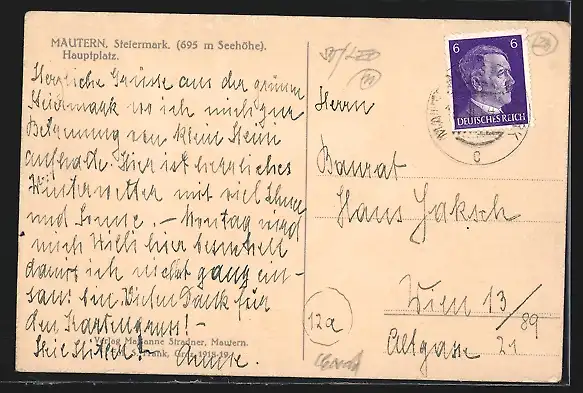 MAUTERN. Steiermark. (695 m Seehöhe).
Hauptplatz.
Herzliche Grüsse aus der grünen
Steiermark wo ich mich zur
Betreuung von klein Heinz
aufhalte. Hier ist herrliches
Winterwetter mit viel Schnee
und Sonne. – Montag wird
mich Willi hier besuchen
damit ich nicht ganz ein-
sam bin. Vielen Dank für
den Kartengruss! –
Verlag Marianne Stradner, Mautern.
Frank, Graz 1918-19
6 6
DEUTSCHES REICH
c
Herrn
Baurat
Hans Jaksch
Wien 13/89
Altgasse 21
12a